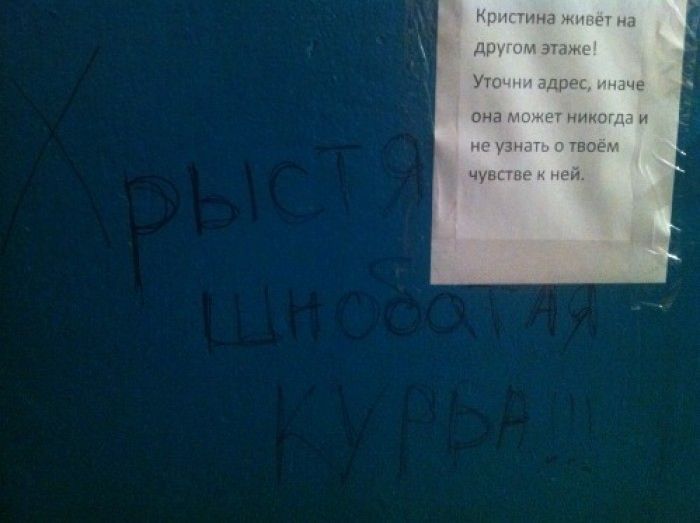 Кристина живёт на
другом этаже!
Уточни адрес, иначе
она может никогда и
не узнать о твоём
чувстве к ней.
Хрыстя
шнобатая
курва!!!